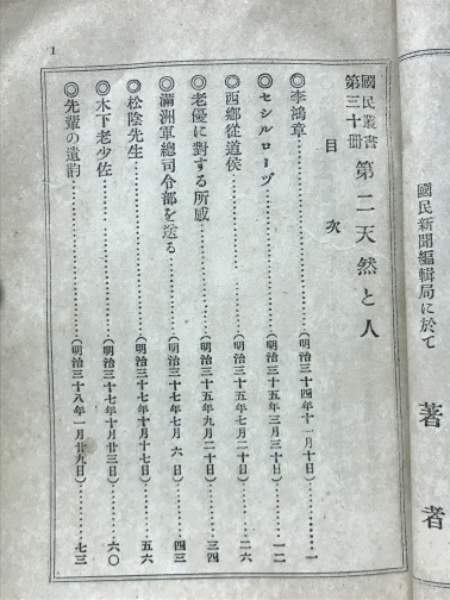 國民新聞編輯局に於て
著者
國民叢書
第三十冊
第二天然と人
目次
◎李鴻章……………(明治三十四年十一月十日)……一
◎セシルローヅ……………(明治三十五年三月三十日)……一二
◎西鄉從道侯……………(明治三十五年七月二十日)……二六
◎老優に對する所感……………(明治三十五年九月二十日)……三四
◎滿洲軍總司令部を送る……………(明治三十七年七月六日)……四三
◎松陰先生……………(明治三十七年十月十七日)……五六
◎木下老少佐……………(明治三十七年十月廿三日)……六〇
◎先輩の遺韵……………(明治三十八年一月廿九日)……七三
1